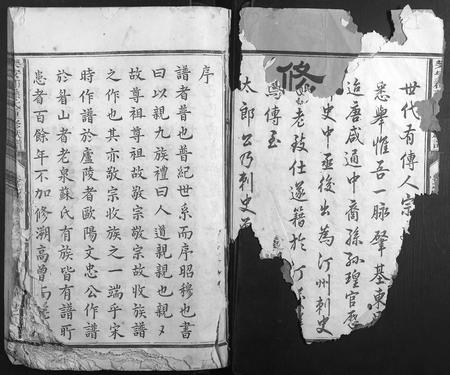 世代有傳人宗
悉舉惟吾一脉肇基東
追唐咸通中裔孫瑝官歷
史中丞後出為汀州刺史
老致仕遂籍於汀
傳至
太郎公乃刺史
修
序
譜者普也普紀世系而序昭穆也書
曰以親九族禮曰人道親親也親々
故尊祖尊祖故敬宗敬宗故收族譜
之作也其亦敬宗收族之一端乎宋
時作譜於廬陵者歐陽文忠公作譜
於眉山者老泉蘇氏有族皆有譜所
患者百餘年不加修溯高曾而